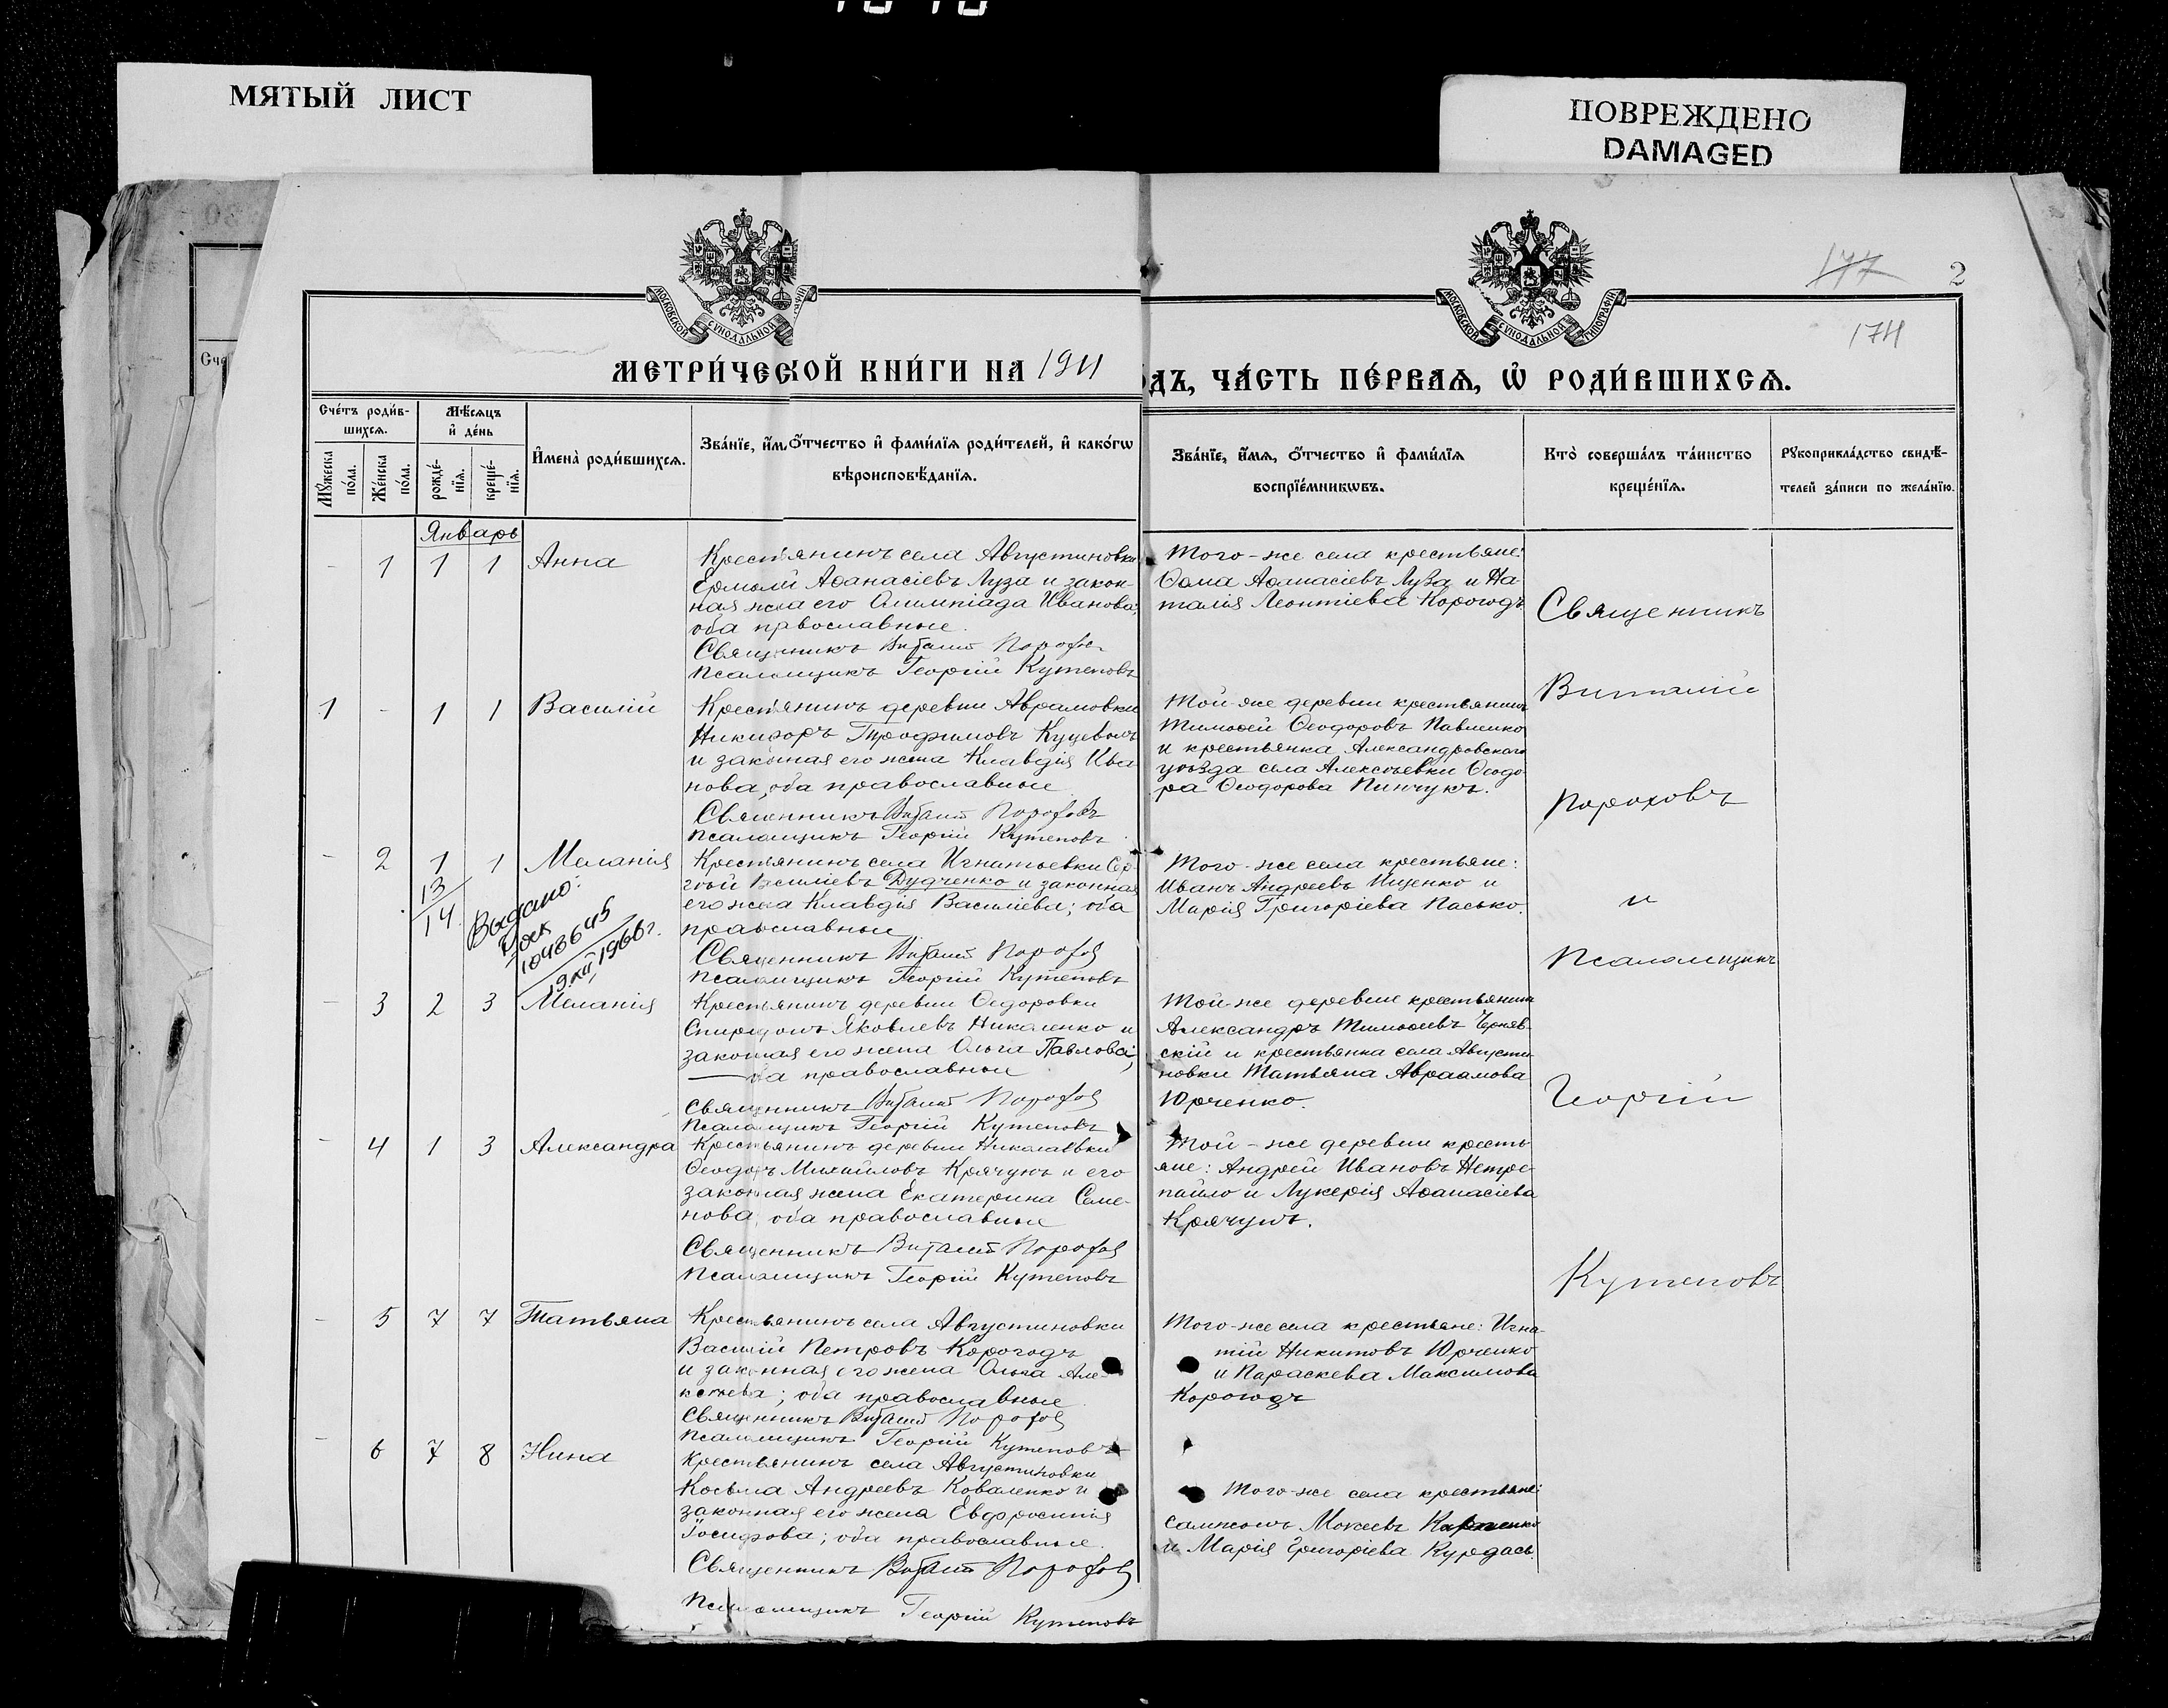 МЯТЫЙ ЛИСТ
ПОВРЕЖДЕНО
DAMAGED
МОСКОВСКОЙ СѴНОДАЛЬНОЙ
МОСКОВСКОЙ СѴНОДАЛЬНОЙ ТИПОГРАФІИ
177
2
174
МЕТРИ́ЧЕСКОЙ КНИ́ГИ НА 1911
ДЪ, ЧА́СТЬ ПЕ́РВАѦ, Ѡ҆ РОДИ́ВШИХСѦ.
Сче́тъ роди́в-
шихсѧ.
Мꙋ́жеска по́ла.
Же́нска по́ла.
Мѣ́сѧцъ
и҆ де́нь
рожде́-
нїѧ.
креще́-
нїѧ.
И҆мена̀ роди́вшихсѧ.
Зва́нїе, и҆́м ѻ҆́тчество и҆ фами́лїѧ роди́телей, и҆ како́гѡ
вѣроисповѣ́данїѧ.
Зва́нїе, и҆́мѧ, ѻ҆́тчество и҆ фами́лїѧ
воспрїе́мникѡвъ.
Кто̀ соверша́лъ та́инство
креще́нїѧ.
Рꙋкоприкла́дство свидѣ́-
телей за́писи по жела́нїю.
Январь
- 1 1 1 Анна
Крестьянинъ села Августиновки
Ермолай Аѳанасіевъ Луза и закон-
ная жена его Олимпіада Иванова;
оба православные.
Священникъ Виталій Пороховъ
Псаломщикъ Георгій Кутеповъ
Того-же села крестьяне:
Ѳома Аѳанасіевъ Луза и На-
талія Леонтіева Корогодъ
Священникъ
Виталій
Пороховъ
и
Псаломщикъ
Георгій
Кутеповъ
1 - 1 1 Василій
Крестьянинъ деревни Аврамовки
Никифоръ Трофимовъ Куцеволъ
и законная его жена Клавдія Ива
нова, оба православные
Священникъ Виталій Пороховъ
Псаломщикъ Георгій Кутеповъ
Той-же деревни крестьянинъ
Тимоѳей Ѳеодоровъ Павленко
и крестьянка Александровскаго
уѣзда села Алексѣевки Ѳеодо-
ра Ѳеодорова Пинчукъ.
- 2 1 1 Меланія
13
14
Выдано:
1048645
9.XII 1966 г.
Крестьянинъ села Игнатьевки Сер-
гѣй Василіевъ Дудченко и законная
его жена Клавдія Василіева; оба
православные
Священникъ Виталій Пороховъ
Псаломщикъ Георгій Кутеповъ
Того-же села крестьяне:
Иванъ Андреевъ Ищенко и
Марія Григоріева Пасько.
- 3 2 3 Меланія
Крестьянинъ деревни Ѳедоровки
Спиридонъ Яковлевъ Николенко и
законная его жена Ольга Павлова;
оба православные
Священникъ Виталій Пороховъ
Псаломщикъ Георгій Кутеповъ
Той-же деревни крестьянинъ
Александръ Тимоѳеевъ Черняв-
скій и крестьянка села Августи-
новки Татьяна Авраамова
Юрченко.
- 4 1 3 Александра
Крестьянинъ деревни Николаевки
Ѳеодоръ Михайловъ Крячунъ и его
законная жена Екатерина Семе-
нова, оба православные
Священникъ Виталій Пороховъ
Псаломщикъ Георгій Кутеповъ
Той-же деревни кресть-
яне: Андрей Ивановъ Нетре-
пайло и Лукерія Аѳанасіева
Крячунъ.
- 5 7 7 Татьяна
Крестьянинъ села Августиновки
Василій Петровъ Корогодъ
и законная его жена Ольга Але-
ксѣева; оба православные
Священникъ Виталій Пороховъ
Псаломщикъ Георгій Кутеповъ
Того-же села крестьяне: Игна-
тій Никитовъ Юрченко
и Параскева Максимова
Корогодъ
- 6 7 8 Нина
Крестьянинъ села Августиновки
Косьма Андреевъ Коваленко и
законная его жена Евфросинія
Іосифова; оба православные.
Священникъ Виталій Пороховъ
Псаломщикъ Георгій Кутеповъ
Того-же села крестьяне:
Сампсонъ Мокеевъ Карпенко
и Марія Григоріева Курдась.